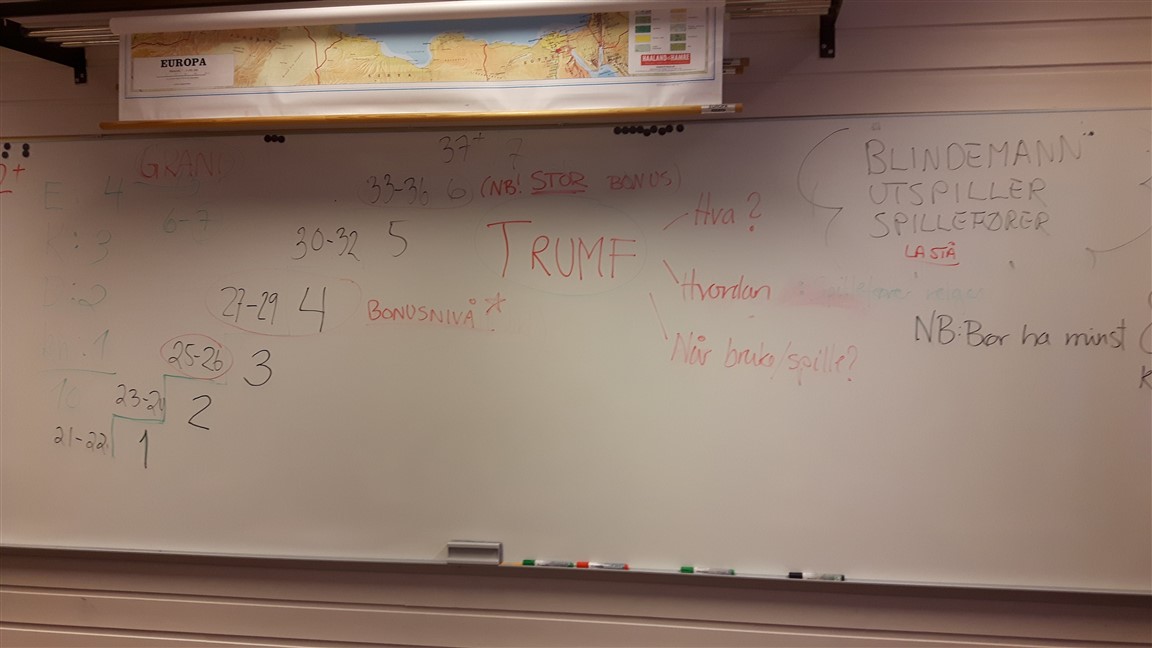 EUROPA
HAALAND & HAMRE
2+
GRAND
E 4
6-7
: 3
: 2
: 1
10
37+ 7
33-36 6 (NB! STOR BONUS)
30-32 5
27-29 4 BONUSNIVÅ *
25-26 3
23-24 2
21-22 1
TRUMF
Hva?
Hvordan
Når bruke/spille?
BLINDEMANN
UTSPILLER
SPILLEFØRER
LA STÅ
NB: Bør ha minst